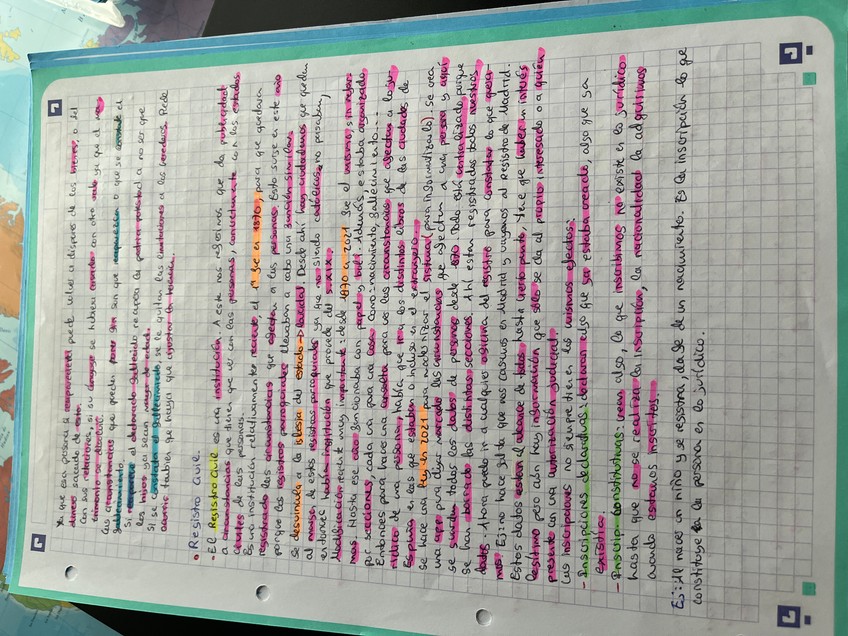 Ya que esa persona si reapareciera puede volver a disponer de sus bienes, o del
dinero sacado de esto.
Con sus relaciones, si su conyuge se hubiera casado con otro vale ya que el ma-
trimonio se disolvió.
Las circunstancias que pueden pasar son son que reaparezca o que se constate el
fallecimiento.
Si reaparece el declarado fallecido recupera la patria potestad a no ser que
los hijos ya sean mayor de edad.
Si se constata el fallecimiento, se le quitan las limitaciones a los herederos. Puede
ocurrir también que haya que ajustar la herencia.
• Registro Civil.
- El Registro Civil es una institución. A este nos referimos, que da publicidad
a circunstancias que tienen que ver con las personas, concretamente con los estados
civiles de las personas.
Es una institución relativamente reciente, el 1º fue en 1870, para que quedara
registrado las circunstancias que afectan a las personas. Esto surge en este año
porque los registros parroquiales llevaban a cabo una función similar.
Se desvincula a la iglesia del estado → laicidad. Desde ahí hay ciudadanos que quedan
al margen de estos registros parroquiales ya que no siendo católicos no pasaban,
entonces había institución que procede del s.XIX.
Modificación reciente muy importante: desde 1870 a 2021 fue el mismo, sin refor-
mas. Hasta ese año funcionaba con papel y boli. Además, estaba organizado
por secciones, cada una para una cosa como: nacimiento, fallecimiento...
Entonces para hacer una consulta para ver las circunstancias que afectan a lo ju-
rídico de una persona, había que ir a los distintos libros de las ciudades de
España en las que estaban o incluso en el extranjero.
Se hace una ley en 2021 para modernizar el sistema (para informatizarlo): se crea
una app para dejar marcado las circunstancias que afectan a una persona y aquí
se guardan todos los datos de personas desde 1870. Todo está centralizado, porque
se han borrado las distintas secciones. Ahí están registrados todos nuestros
datos. Ahora puedo ir a cualquier oficina del registro para constatar lo que quera-
mos. Ej: no hace falta que nos casemos en Madrid y vayamos al Registro de Madrid.
Estos datos están al alcance de todos, hasta cierto punto. Tiene que haber un interés
legítimo pero aún hay información que sólo se da al propio interesado o a quien
presente en una autorización judicial.
Las inscripciones no siempre tienen los mismos efectos:
- Inscripciones declarativas: declaran algo que ya estaba creado, algo que ya
existía.
- Inscrip. constitutivas: crean algo, lo que inscribimos no existe en lo jurídico
hasta que no se realiza la inscripción, la nacionalidad la adquirimos
cuando estamos inscritos.
Ej: Al nacer un niño y se registra, da fe de un nacimiento. Es la inscripción lo que
constituye la persona en lo jurídico.